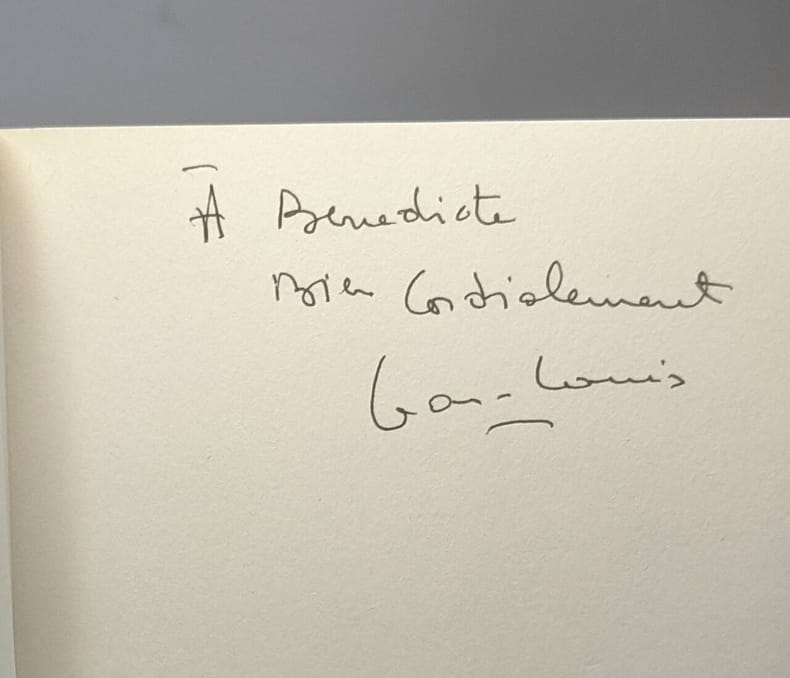 À Benedicte
Bien Cordialement
Jean-Louis